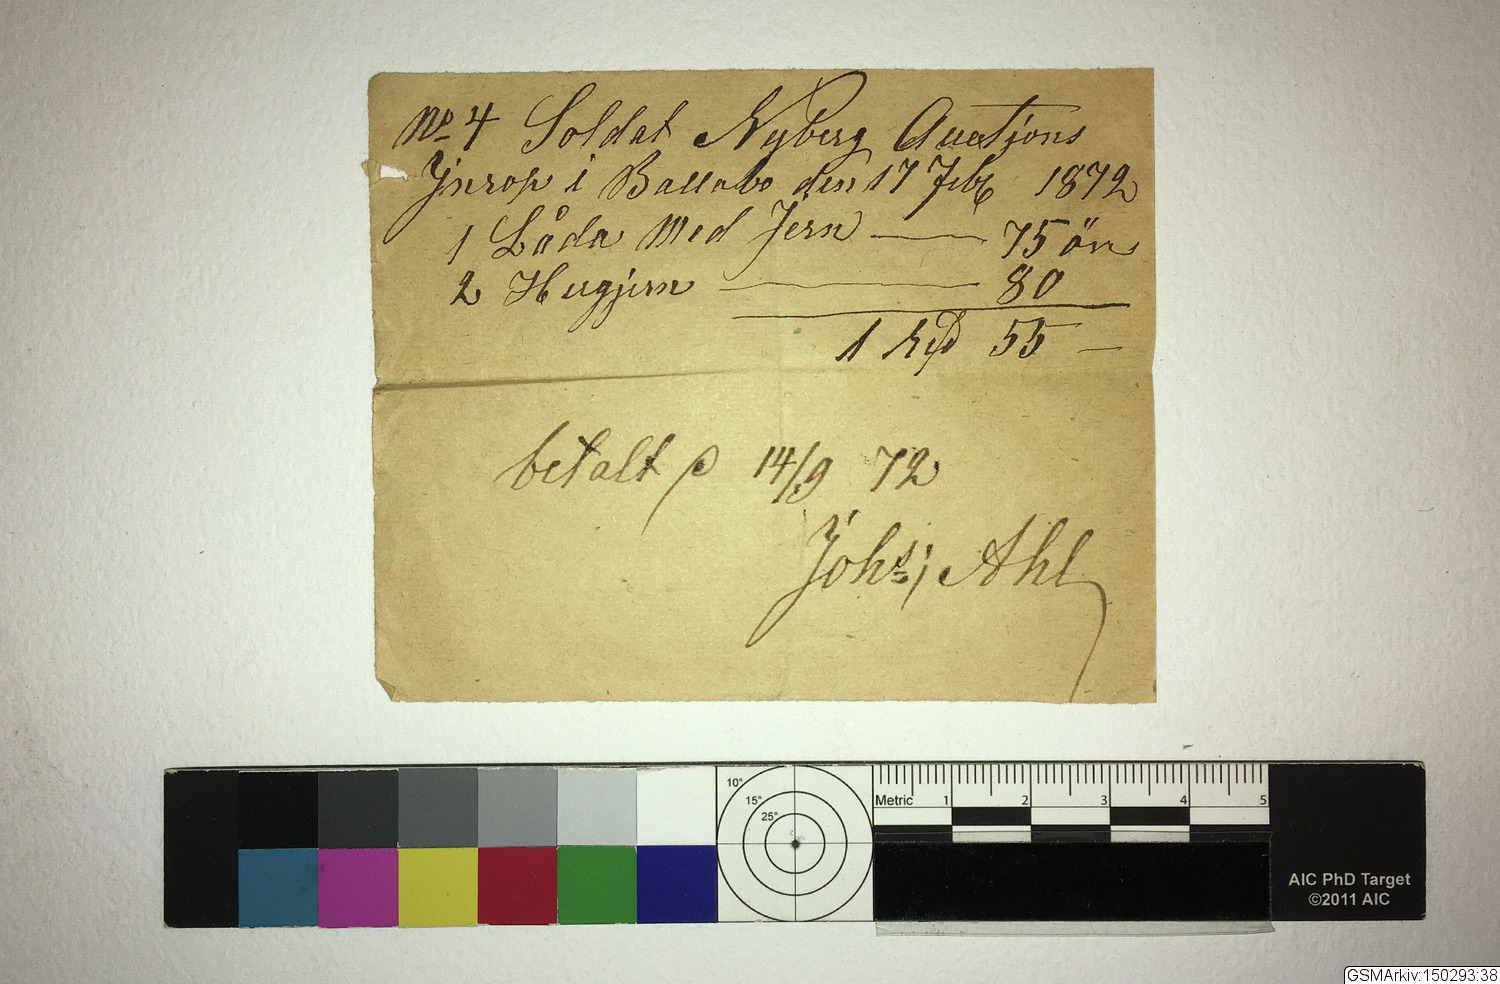 No 4 Soldat Nyberg Auctjons
Jnrop i Ballabo den 17 Feb 1872
1 Låda Med Jern — 75 öre
2 Hugjern — 80
1 Rd 55 —
betalt 14/9 72
Johs; Ahl
10° 15° 25°
Metric 1 2 3 4 5
AIC PhD Target
©2011 AIC
GSMArkiv:150293:38